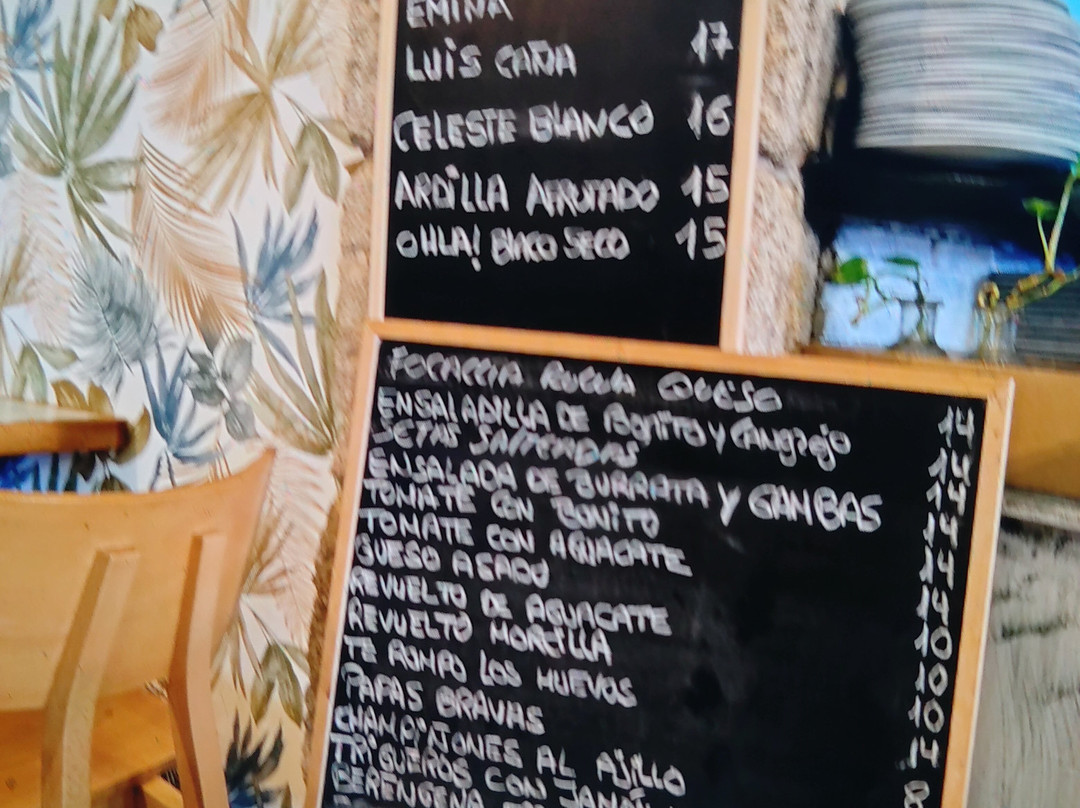 EMINA
LUIS CAÑA 17
CELESTE BLANCO 16
ARDILLA AFRUTADO 15
OHLA! BLNCO SECO 15
FOCACCIA RUCULA QUESO 14
ENSALADILLA DE BONITO Y CANGREJO 14
SETAS SALTEADAS 14
ENSALADA DE BURRATA Y GAMBAS 14
TOMATE CON BONITO 14
TOMATE CON AGUACATE 14
QUESO ASADO 10
REVUELTO DE AGUACATE 10
REVUELTO MORCILLA 10
TE ROMPO LOS HUEVOS 14
PAPAS BRAVAS 8
CHAMPIÑONES AL AJILLO
TRIGUEROS CON JAMÓN
BERENGENA